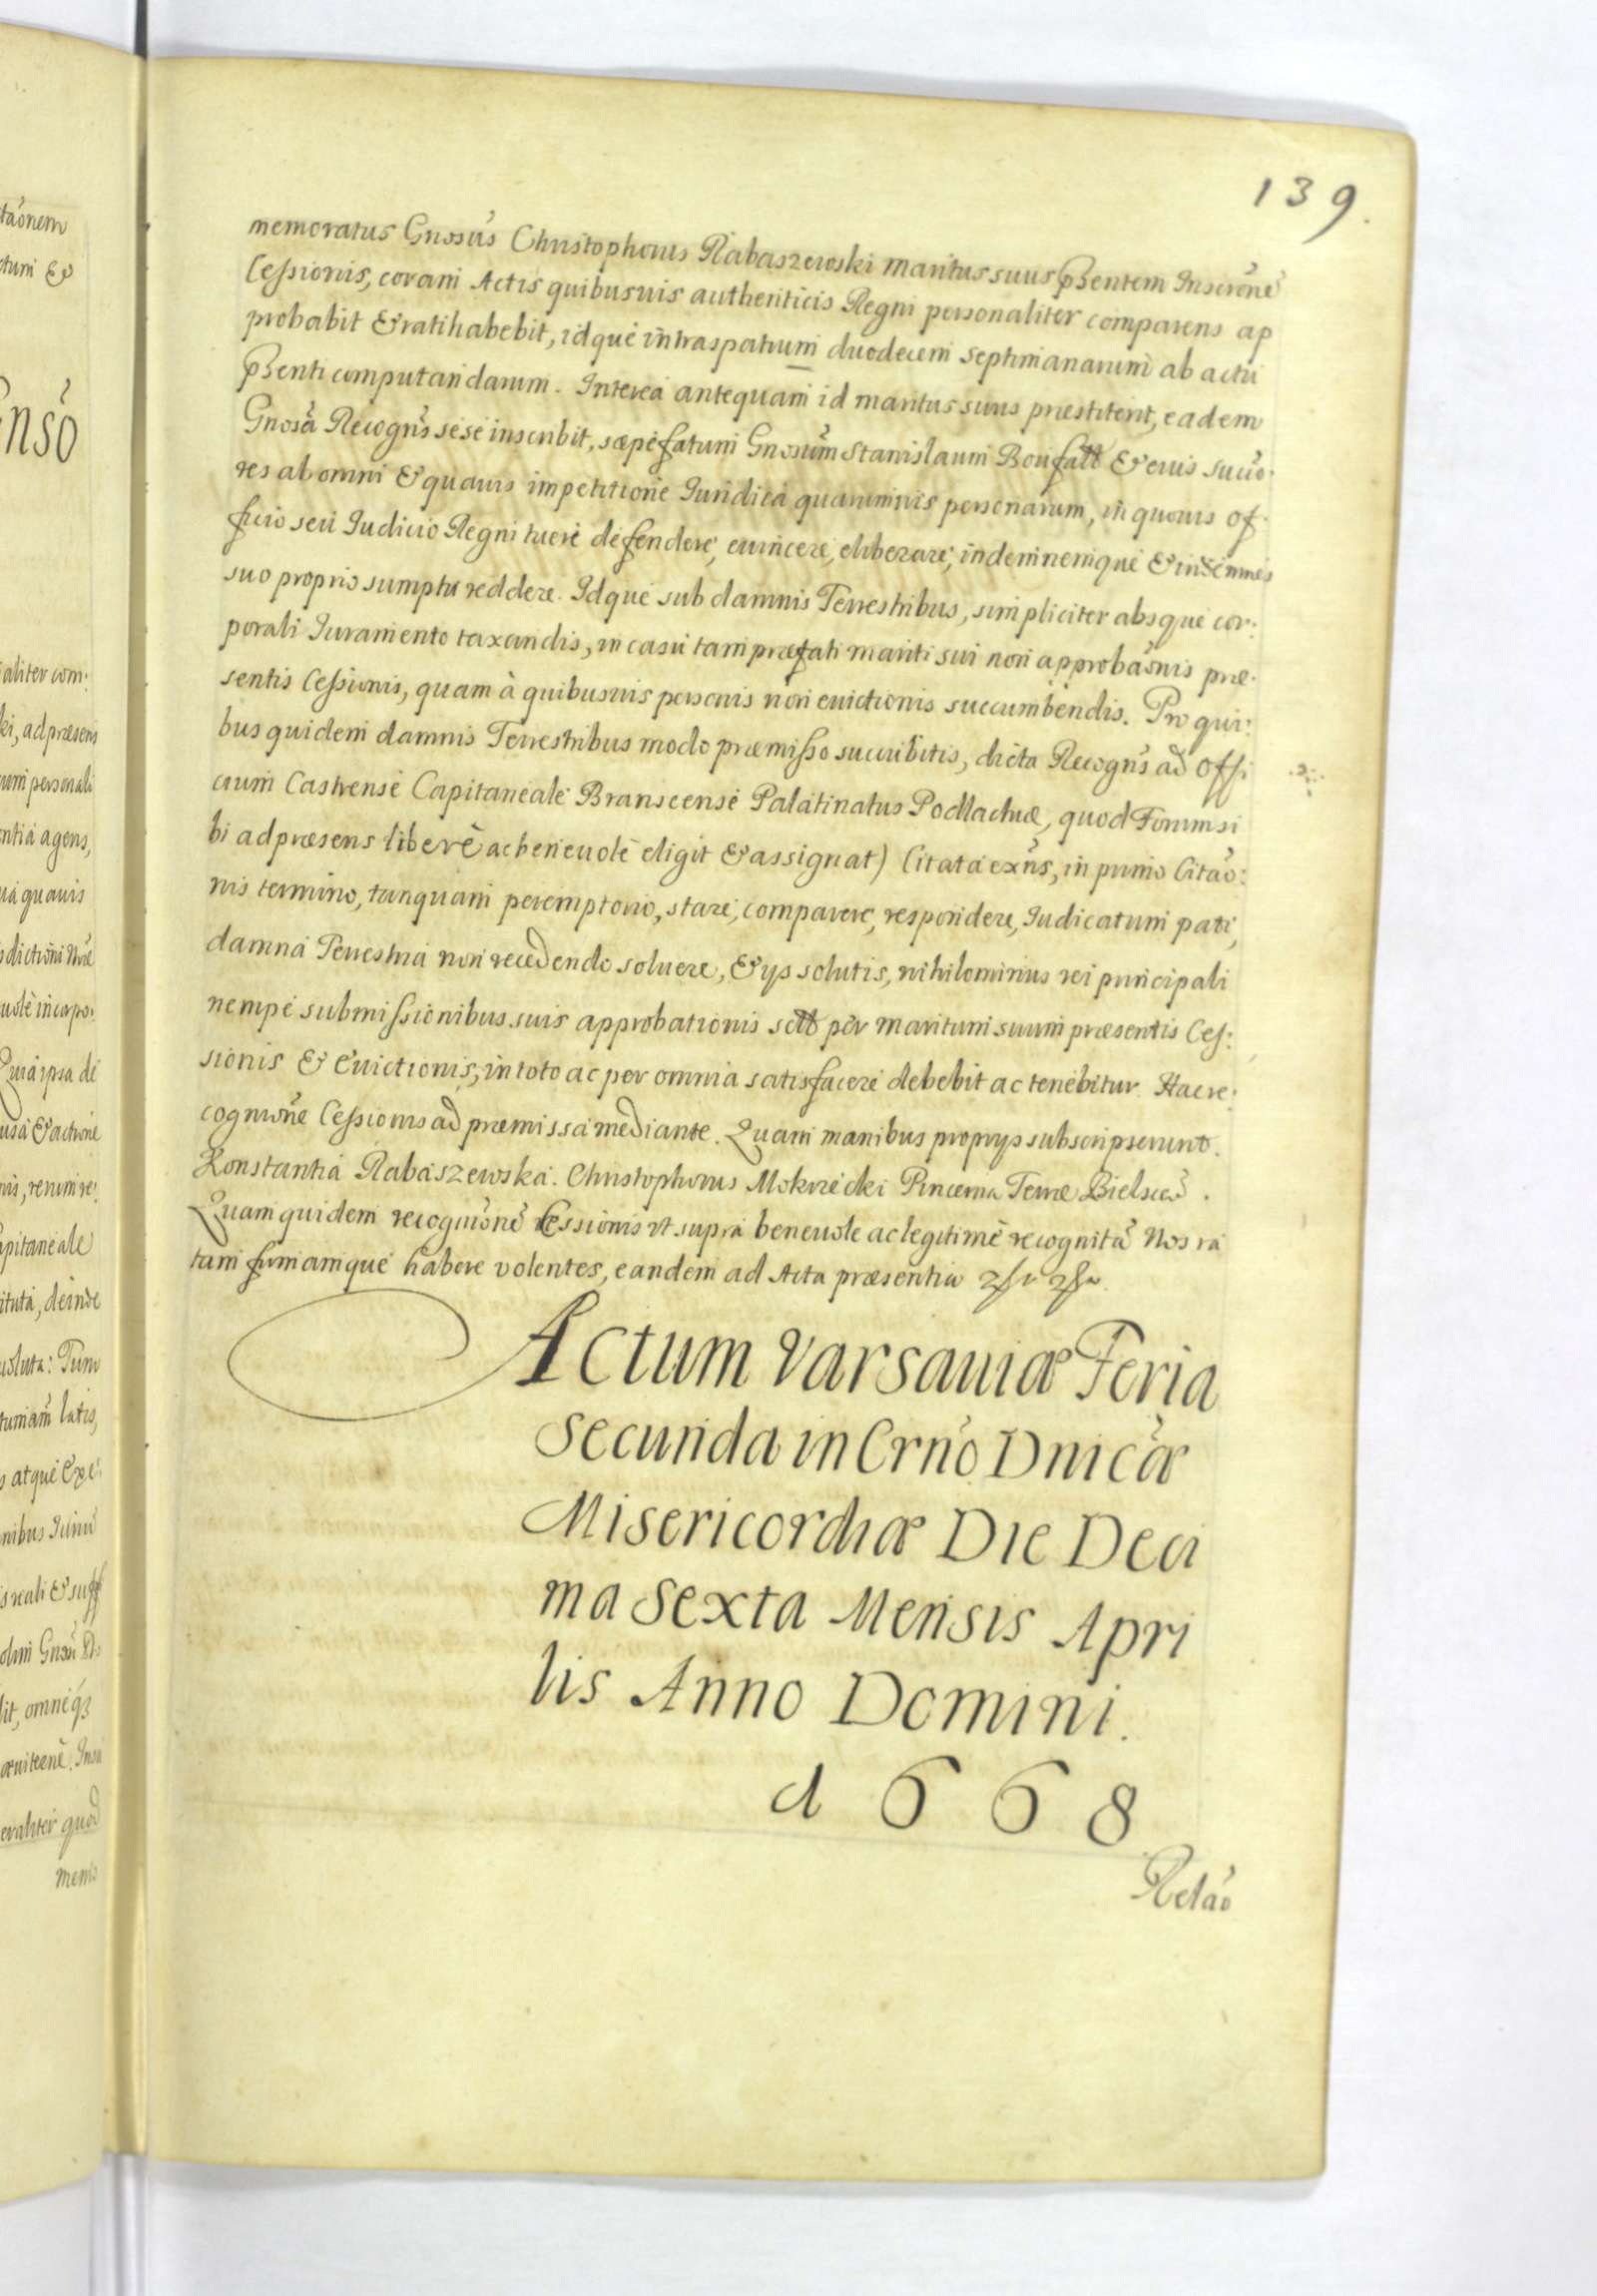 139.
memoratus Gnosus Christophorus Rabaszewski maritus suus psentem Inscrone
Cessionis, coram Actis quibusuis authenticis Regni personaliter comparens ap
probabit & ratihabebit, idque intra spatium duodecem septimanarum ab actu
psenti computandarum. Interea antequam id maritus suus præstiterit, eadem
Gnosa Recogns sese inscribit, sæpefatum Gnosum Stanislaum Boufałł & eius succo:
res ab omni & quauis impetitione Iuridica quarumuis personarum, in quouis of:
ficio seu Iudicio Regni tueri defendere, euincere, eliberare, indemnemque & indemnes
suo proprio sumptu reddere. Idque sub damnis Terrestribus, simpliciter absque cor:
porali Iuramento taxandis, in casu tam præfati mariti sui non approbaonis præ:
sentis Cessionis, quam à quibusuis personis non euictionis succumbendis. Pro qui:
bus quidem damnis Terrestribus modo præmisso succubitis, dicta Recogns ad Offi
cium Castrense Capitaneale Branscense Palatinatus Podlachiæ, quod Forum si
bi ad præsens liberè ac beneuolè eligit & assignat) Citata exns, in primo Citao:
nis termino, tanquam peremptorio, stare, comparere, respondere, Iudicatum pati,
damna Terrestria non recedendo soluere, & ijs solutis, nihilominus rei principali
nempe submissionibus suis approbationis sctt per maritum suum præsentis Ces:
sionis & Euictionis, in toto ac per omnia satisfacere debebit ac tenebitur. Hac re:
cognione Cessionis ad præmissa mediante. Quam manibus proprijs subscripserunt.
Konstantia Rabaszewska. Christophorus Mokrzecki Pincerna Terræ Bielscen.
Quam quidem recognione Cessionis vt supra beneuole ac legitimè recognita Nos ra
tam firmamque habere volentes, eandem ad Acta præsentia
Actum Varsauiæ Feria
secunda in Crno Dnicæ
Misericordiæ Die Deci
ma Sexta Mensis Apri
lis Anno Domini.
1668
Relao